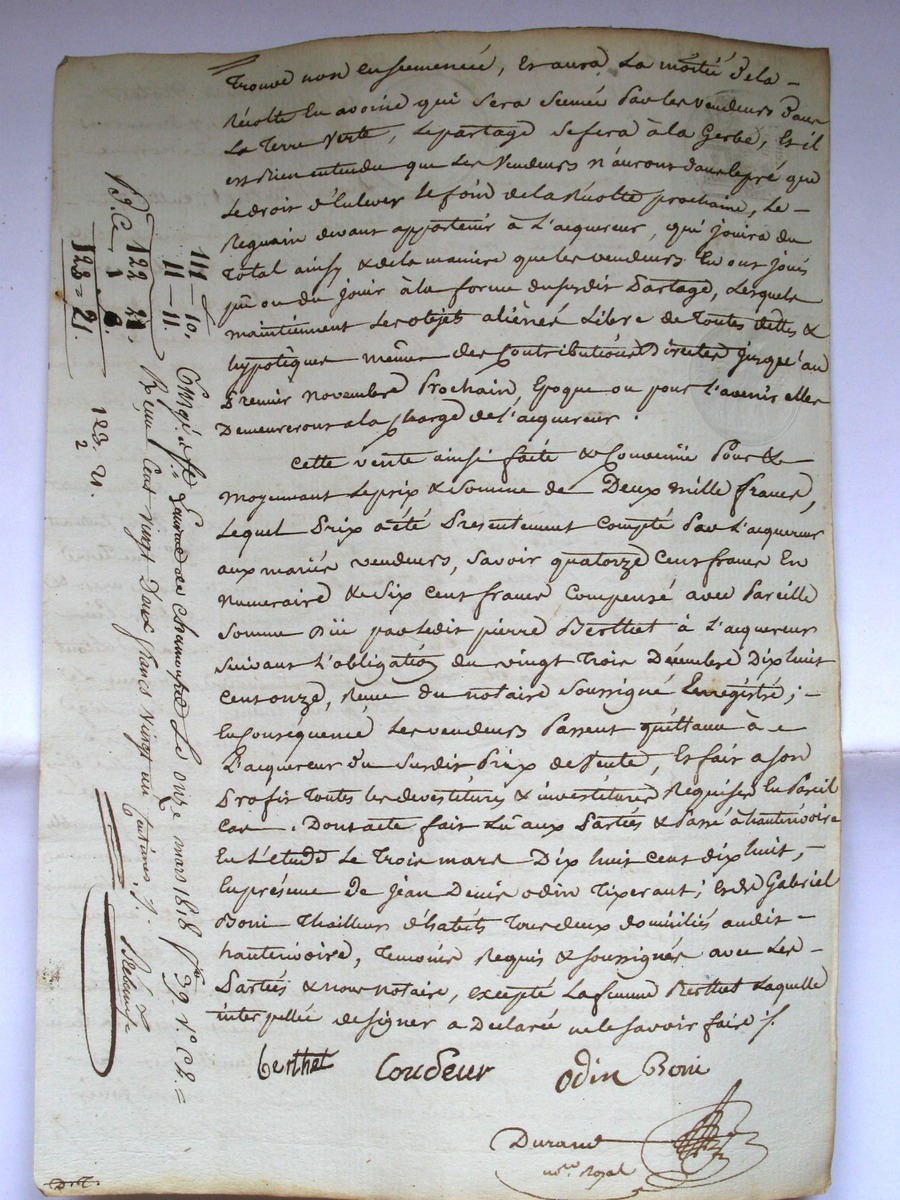 trouvé non ensemencé, Et aura La moitié dela -
Récolte En avoine qui sera semée Par les vendeurs Dans
La Terre Verte, Le partage se fera à la Gerbe, Et il
est Bien entendu que Les Vendeurs n'auront dans le pré que
Le droit d'Enlever Le foin de la Récolte prochaine, Le -
Reguain devant appartenir à L'acquereur, qui jouira du
Total ainsy & de la maniere que les vendeurs En ont joui
pû ou dû jouir à la forme du susdit Partage, Lesquels
maintiennent Les objets aliénés Libre de Toutes dettes &
hypotèques même des Contributions Directes jusqu'au
Premier novembre Prochain, Epoque ou pour l'avenir elles
Demeureront a la Charge de l'acquereur.
Cette vente ainsi faite & Convenüe Pour &
moyennant Le prix & Somme de Deux mille francs,
Lequel Prix a été Presentement Compté Par L'acquereur
aux mariés vendeurs, Savoir quatorze Cent francs En
numeraire & Six Cent francs Compensé avec Pareille
Somme Düe par Ledit pierre Berthet à L'acquereur
suivant L'obligation du vingt Trois Décembre Dix huit
cent onze, Reçue du notaire Soussigné Enregistré; -
En Conséquence Les vendeurs Passent quittance à
L'acquereur Du Susdit Prix de Vente, Et fait a son
Profit Toutes Les devestitures & investitures Requises En Pareil
Cas. Dont acte fait Lu aux Parties & Passé à hauterivoire
En L'étude Le Trois mars Dix huit cent dix huit, -
En présence de Jean Denis Odin Tixerant; Et de Gabriel
Boni Thailleur d'habits Tous deux domiciliés audit -
hauterivoire, Temoins Requis & soussignés avec Les -
Parties & nous notaire, excepté La femme Berthet Laquelle
interpellée de signer a Declaré ne le savoir faire ./.
berthet Coudeur Odin Boni
Durand
no.re Royal
111 - 10.
11 - 11.
122 21.
1
123 = 21.
123. 21.
2
Enregistré à St Laurent de chamousset Le onze mars 1818 f.o 39 V.o C.8. =
Reçu Cent vingt Deux francs vingt un Centimes ./.